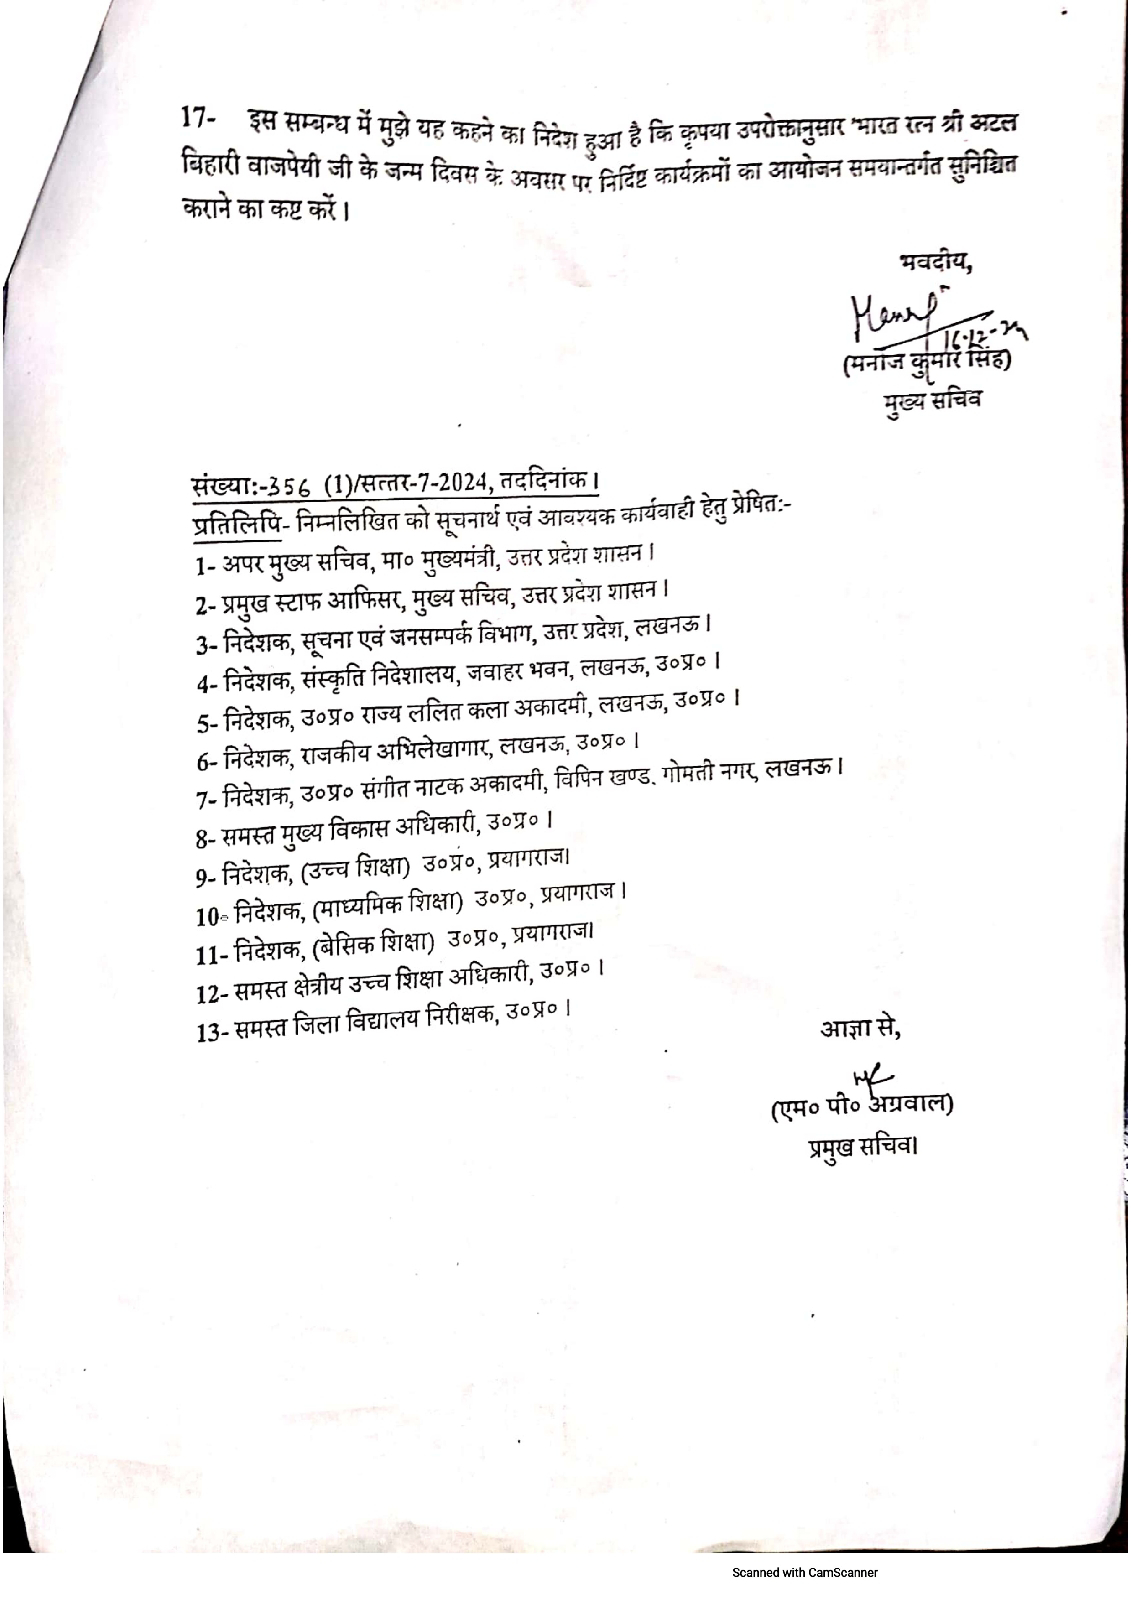 17- इस सम्बन्ध में मुझे यह कहने का निदेश हुआ है कि कृपया उपरोक्तानुसार 'भारत रत्न श्री अटल
बिहारी वाजपेयी जी के जन्म दिवस के अवसर पर निर्दिष्ट कार्यक्रमों का आयोजन समयान्तर्गत सुनिश्चित
कराने का कष्ट करें।
भवदीय,
16-12-24
(मनोज कुमार सिंह)
मुख्य सचिव
संख्या:-356 (1)/सत्तर-7-2024, तददिनांक।
प्रतिलिपि- निम्नलिखित को सूचनार्थ एवं आवश्यक कार्यवाही हेतु प्रेषित:-
1- अपर मुख्य सचिव, मा० मुख्यमंत्री, उत्तर प्रदेश शासन।
2- प्रमुख स्टाफ आफिसर, मुख्य सचिव, उत्तर प्रदेश शासन।
3- निदेशक, सूचना एवं जनसम्पर्क विभाग, उत्तर प्रदेश, लखनऊ।
4- निदेशक, संस्कृति निदेशालय, जवाहर भवन, लखनऊ, उ०प्र०।
5- निदेशक, उ०प्र० राज्य ललित कला अकादमी, लखनऊ, उ०प्र०।
6- निदेशक, राजकीय अभिलेखागार, लखनऊ, उ०प्र०।
7- निदेशक, उ०प्र० संगीत नाटक अकादमी, विपिन खण्ड. गोमती नगर, लखनऊ।
8- समस्त मुख्य विकास अधिकारी, उ०प्र०।
9- निदेशक, (उच्च शिक्षा) उ०प्र०, प्रयागराज।
10- निदेशक, (माध्यमिक शिक्षा) उ०प्र०, प्रयागराज।
11- निदेशक, (बेसिक शिक्षा) उ०प्र०, प्रयागराज।
12- समस्त क्षेत्रीय उच्च शिक्षा अधिकारी, उ०प्र०।
13- समस्त जिला विद्यालय निरीक्षक, उ०प्र०।
आज्ञा से,
(एम० पी० अग्रवाल)
प्रमुख सचिव।
Scanned with CamScanner